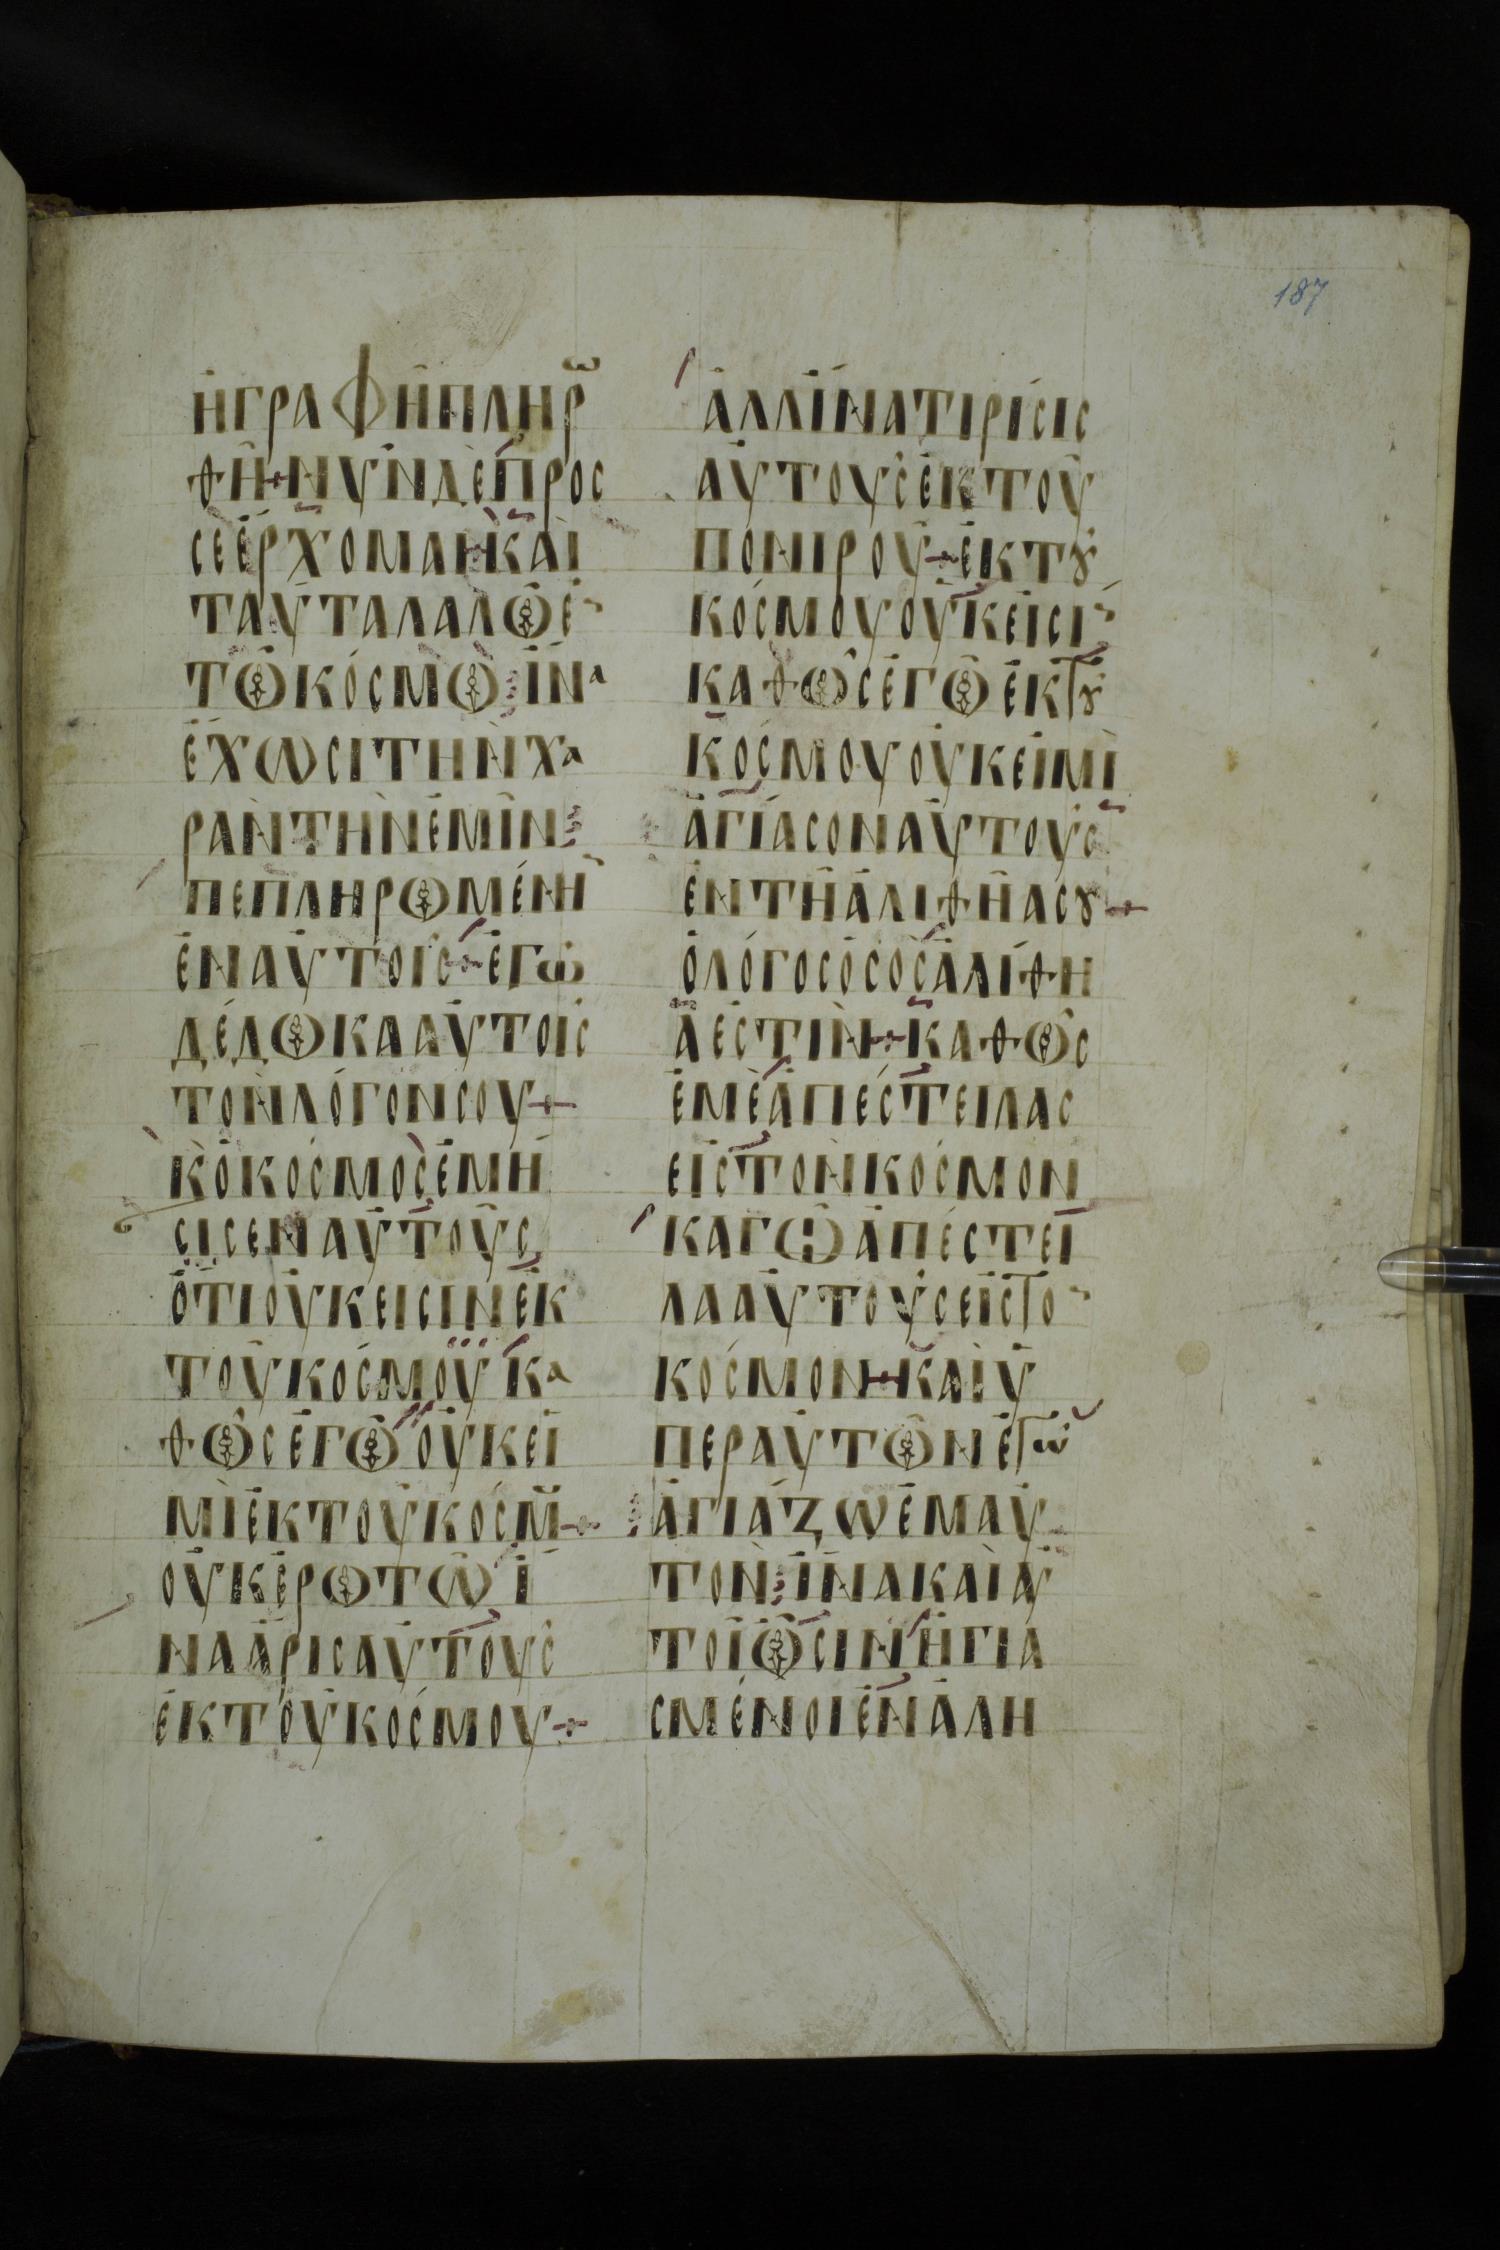 187
ἩΓΡΑΦΗ͂ΠΛΗΡω
ΘΗ͂+ΝΥ͂ΝΔῈΠΡΟС
СΕἘΡΧΟΜΑΙ+ΚΑῚ
ΤΑΥ͂ΤΑΛΑΛΩ͂Ἐ
ΤΩ͂ΚΌСΜῺ ἽΝΑ
ἜΧΩСΙΤΗΝ̀ΧΑ
ΡΑΝ̀ΤΗΝ̀ἘΜΙ͂Ν
ΠΕΠΛΗΡΩΜΈΝΗ
ἘΝΑΥ̓ΤΟΙ͂С+ἘΓῺ
ΔΈΔΩΚΑΑΥ̓ΤΟΙС
ΤΟΝ̀ΛΌΓΟΝСΟΥ+
Κ̀ὉΚΟСΜΟСἘΜΗ
СΙСΕΝΑΥ̓ΤΟΥ͂С
ὍΤΙΟΥ̓ΚΕΙСΙΝἘΚ
ΤΟΥ͂ΚΟСΜΟΥ ΚΑ
ΘῺСἘΓῺΟΥ̓ΚΕΙ
ΜῚἘΚΤΟΥ͂ΚΟСΜ+
ΟΥ̓ΚἘΡΩΤΩ͂ Ἱ
ΝΑἌΡΙСΑΥ̓ΤΟΥС
ἘΚΤΟΥ͂ΚΟСΜΟΥ+
ἈΛΛΊΝΑΤΙΡΊСΙС
ΑΥ̓ΤΟῪСἘΚΤΟΥ͂
ΠΟΝΙΡΟΥ͂+ἘΚΤȢ͂
ΚΌСΜΟΥΟΥ̓ΚΕΙСΙ
ΚΑΘῺСἘΓῺἘΚΤȢ͂
ΚΟСΜΟΥΟΥ̓ΚΕΙΜῚ
ἉΓΊΑСΟΝΑΥ̓ΤΟῪС
ἘΝΤΗ͂ἈΛΙΘΗΑСȢ+
ὉΛΌΓΟСὉСῸСἈΛΊΘΗ
ἈΕСΤΙΝ̀+ΚΑΘῺС
ἘΜῈἈΠΈСΤΕΙΛΑС
ΕἸСΤΟΝ̀ΚΟСΜΟΝ
ΚΑΓῺἈΠΈСΤΕΙ
ΛΑΑΥ̓ΤΟῪСΕἸСΤΟ
ΚΟСΜΟΝ+ΚΑῚΥ̓
ΠΕΡΑΥ̓ΤΩ͂ΝἘΓῺ
ἉΓΙΆΖΩἘΜΑΥ
ΤΟΝ̀ ἽΝΑΚΑῚΑΥ̓
ΤΟῚΩ͂СΙΝἩΓΙΑ
СΜΈΝΟΙἘΝἈΛΗ